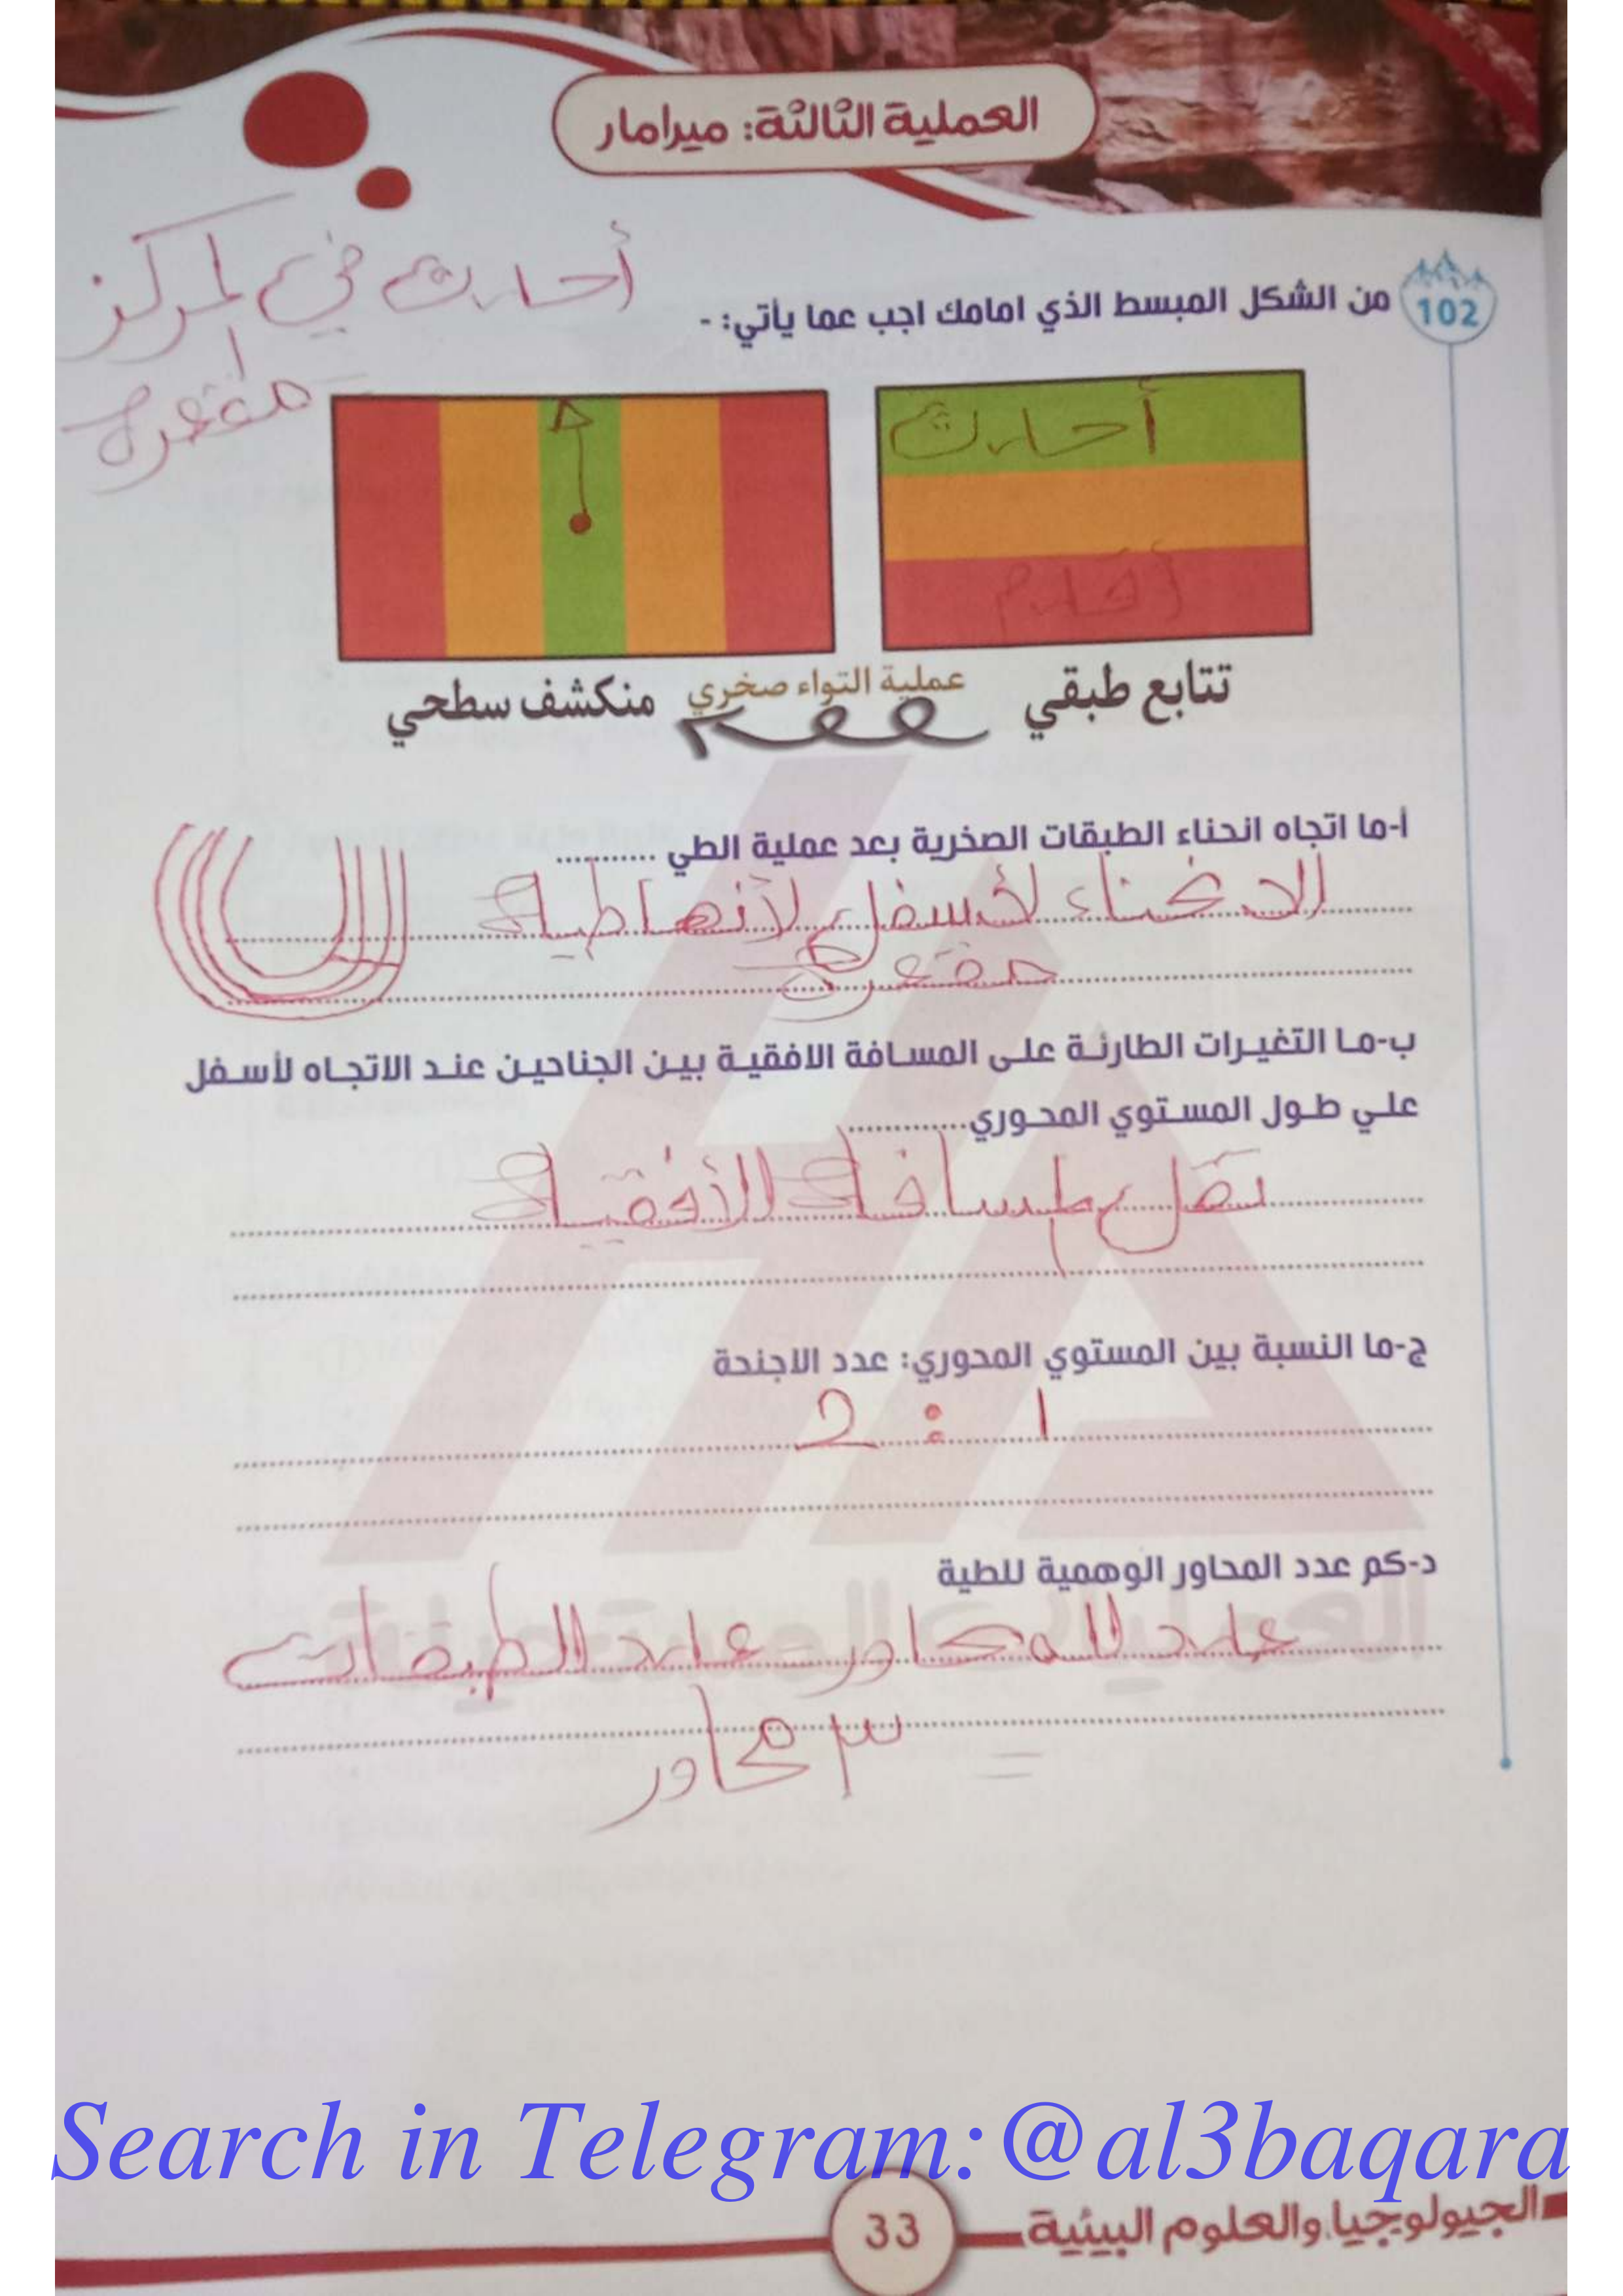 العملية الثالثة: ميرامار
أحدث في المركز
مقعرة
102
من الشكل المبسط الذي امامك اجب عما يأتي: -
أحدث
أقدم
تتابع طبقي
عملية التواء صخري
منكشف سطحي
أ-ما اتجاه انحناء الطبقات الصخرية بعد عملية الطي ...........
الانحناء لأسفل لأنها طية
مقعرة
ب-ما التغيرات الطارئة على المسافة الافقية بين الجناحين عند الاتجاه لأسفل
علي طول المستوي المحوري.............
تقل المسافة الأفقية
ج-ما النسبة بين المستوي المحوري: عدد الاجنحة
1 : 2
د-كم عدد المحاور الوهمية للطية
عدد المحاور = عدد الطبقات
= ٣ محاور
العملية المستحيلة
Search in Telegram:@al3baqara
33
الجيولوجيا والعلوم البيئية